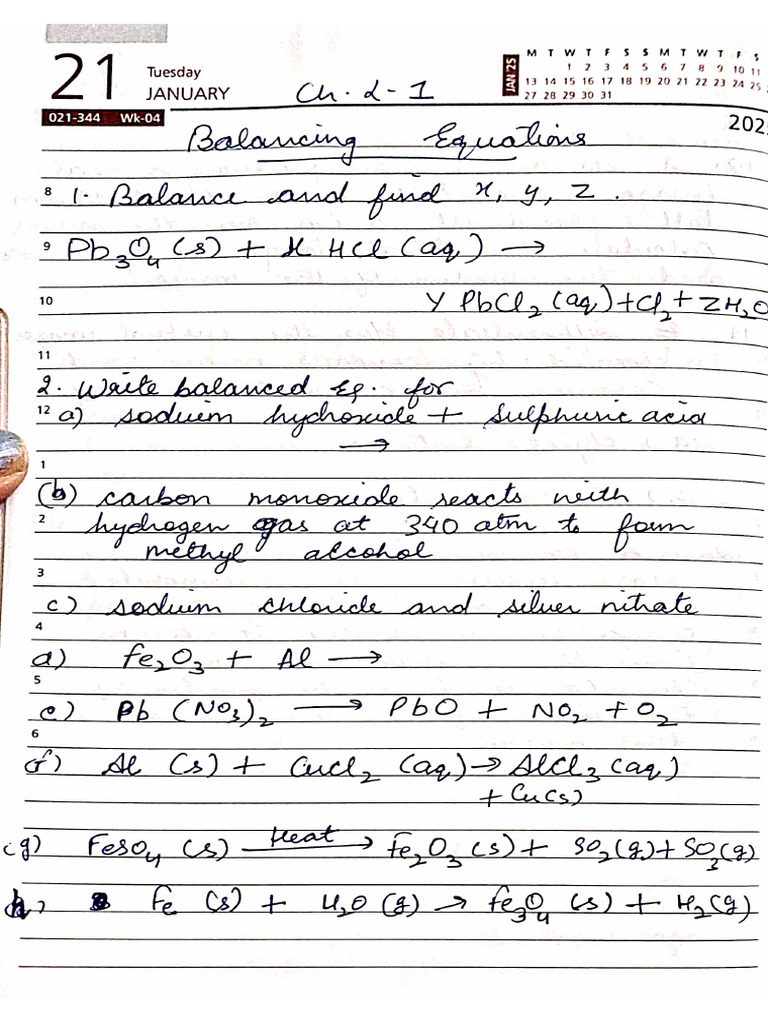 21 Tuesday JANUARY
021-344 Wk-04
Ch. 2-1
JAN '25
M T W T F S S M T W T F S
1 2 3 4 5 6 7 8 9 10 11
13 14 15 16 17 18 19 20 21 22 23 24 25
27 28 29 30 31
202
Balancing Equations
8 1. Balance and find x, y, z.
9 Pb₃O₄ (s) + x HCl (aq) →
10 Y PbCl₂ (aq) + Cl₂ + Z H₂O
11
2. Write balanced Eq. for
12 a) sodium hydroxide + sulphuric acid
→
1
(b) carbon monoxide reacts with
2 hydrogen gas at 340 atm to form
methyl alcohol
3
c) sodium chloride and silver nitrate
4
d) Fe₂O₃ + Al →
5
e) Pb (NO₃)₂ → PbO + NO₂ + O₂
6
f) Al (s) + CuCl₂ (aq) → AlCl₃ (aq)
+ Cu(s)
(g) FeSO₄ (s) Heat → Fe₂O₃ (s) + SO₂(g) + SO₃(g)
h) Fe (s) + H₂O (g) → Fe₃O₄ (s) + H₂(g)